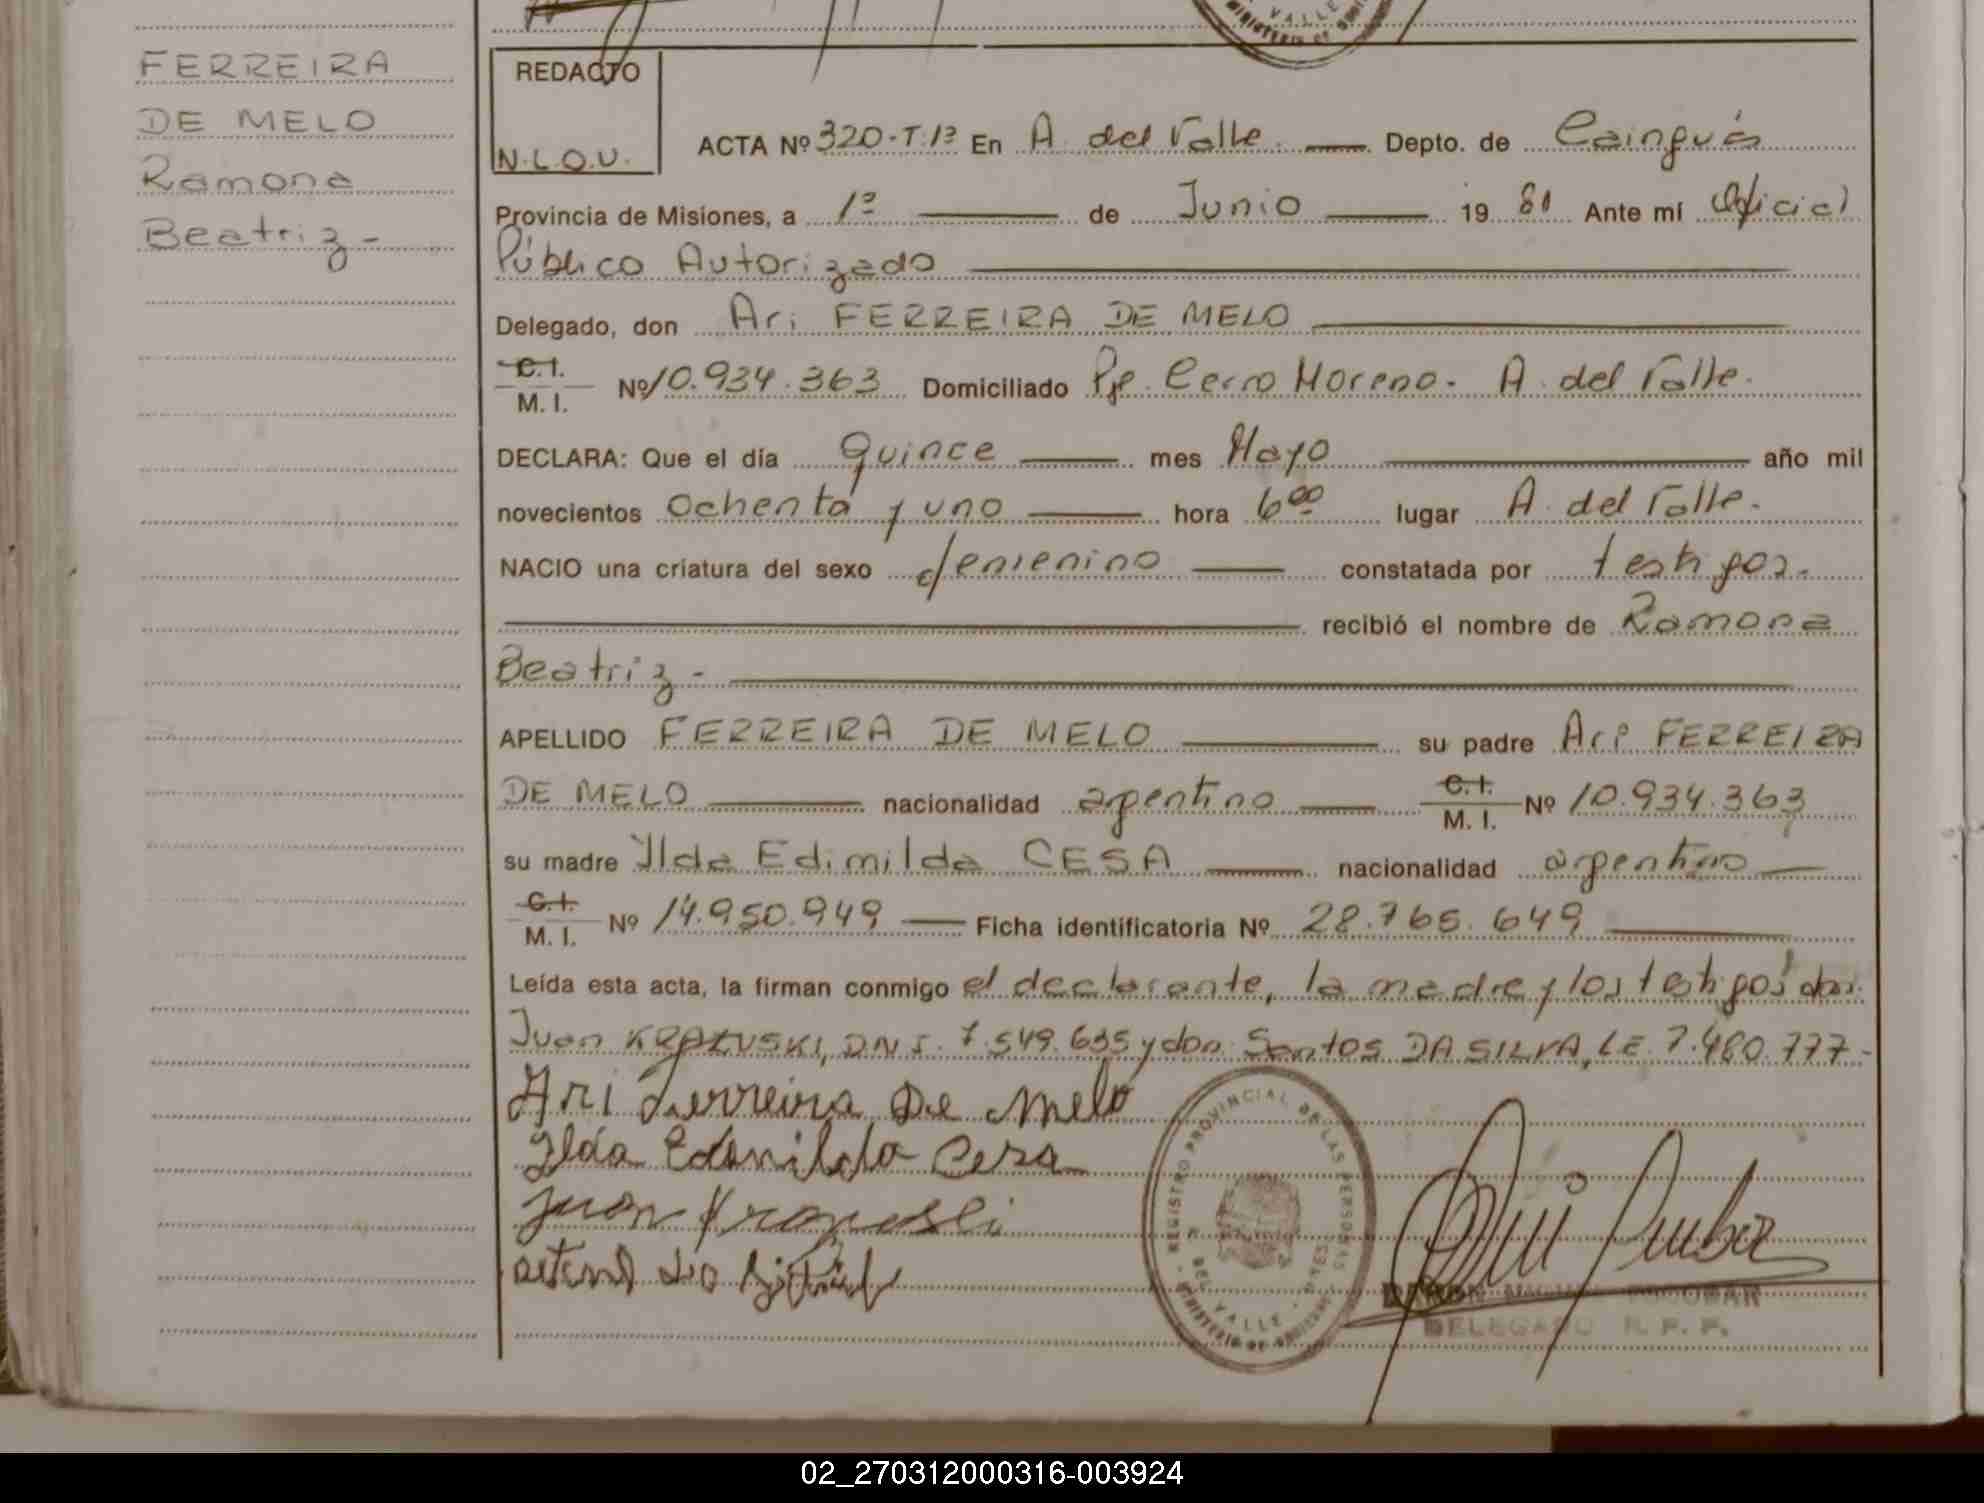 FERREIRA
DE MELO
Ramona
Beatriz -
REDACTO
N.L.O.U.
ACTA Nº 320-T.1º En A. del Valle. Depto. de Cainguás
Provincia de Misiones, a 1º de Junio 19 81 Ante mí Oficial
Público Autorizado
Delegado, don Ari FERREIRA DE MELO
C.I.
M. I. Nº 10.934.363 Domiciliado Pje. Cerro Moreno. A. del Valle.
DECLARA: Que el día quince mes Mayo año mil
novecientos Ochenta y uno hora 6⁰⁰ lugar A. del Valle.
NACIO una criatura del sexo femenino constatada por testigos.
recibió el nombre de Ramona
Beatriz -
APELLIDO FERREIRA DE MELO su padre Ari FERREIRA
DE MELO nacionalidad argentino C.I. M. I. Nº 10.934.363
su madre Ilda Edimilda CESA nacionalidad argentina
C.I.
M. I. Nº 14.950.949 Ficha identificatoria Nº 28.765.649
Leída esta acta, la firman conmigo el declarante, la madre y los testigos don
Juan DNI. 7.549.635 y don Santos DA SILVA, LE 7.480.777-
Ari Ferreira De Melo
Ilda Edimilda Cesa
Juan
REGISTRO PROVINCIAL DE LAS PERSONAS
DEL VALLE
MINISTERIO DE
ESCOBAR
DELEGADO R. P. P.
02_270312000316-003924